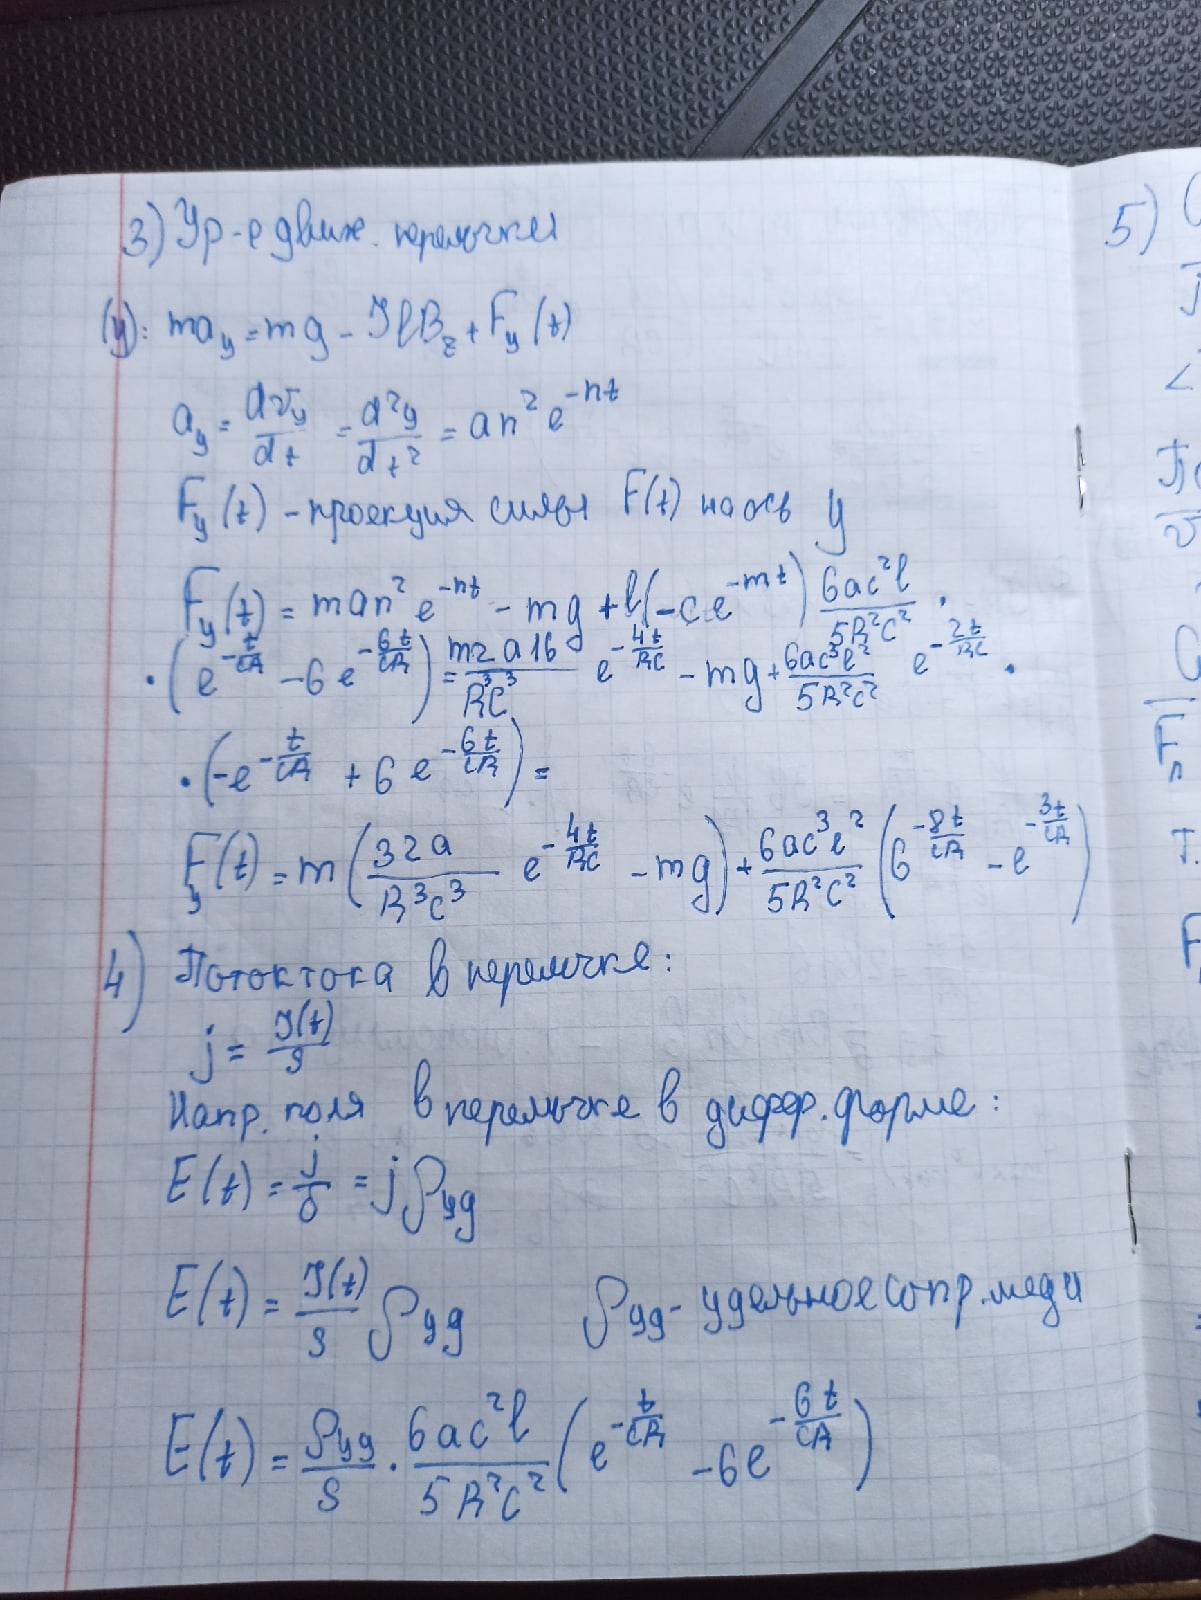 3) Ур-е движ. перемычки
(y): ma_y = mg - IlB_z + F_y(t)
a_y = dv_y/dt = d²y/dt² = an²e^(-nt)
F_y(t) - проекция силы F(t) на ось y
F_y(t) = man²e^(-nt) - mg + l(-ce^(-mt)) 6ac²l/5R²C² ·
· (e^(-t/CR) - 6e^(-6t/CR)) = m2a16/R³C³ e^(-4t/RC) - mg + 6ac³l²/5R²C² e^(-2t/RC) ·
· (-e^(-t/CR) + 6e^(-6t/CR)) =
F_y(t) = m(32a/R³C³ e^(-4t/RC) - mg) + 6ac³l²/5R²C² (6^(-8t/CR) - e^(-3t/CR))
4) Поток тока в перемычке:
j = I(t)/S
Напр. поля в перемычке в дифф. форме:
E(t) = j/σ = jρ_уд
E(t) = I(t)/S ρ_уд ρ_уд - удельное сопр. меди
E(t) = ρ_уд/S · 6ac²l/5R²C² (e^(-t/CR) - 6e^(-6t/CR))
5)